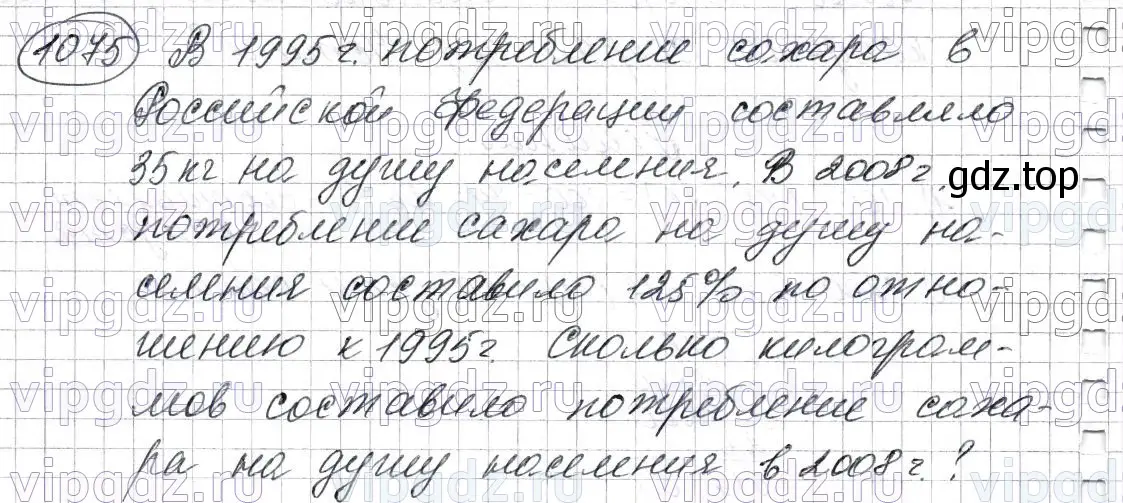 1075 В 1995 г. потребление сахара в
Российской Федерации составляло
35 кг на душу населения. В 2008 г.
gdz.top
потребление сахара на душу на-
селения составило 125% по отно-
шению к 1995 г. Сколько килограм-
мов составило потребление саха-
ра на душу населения в 2008 г.?
vipgdz.ru